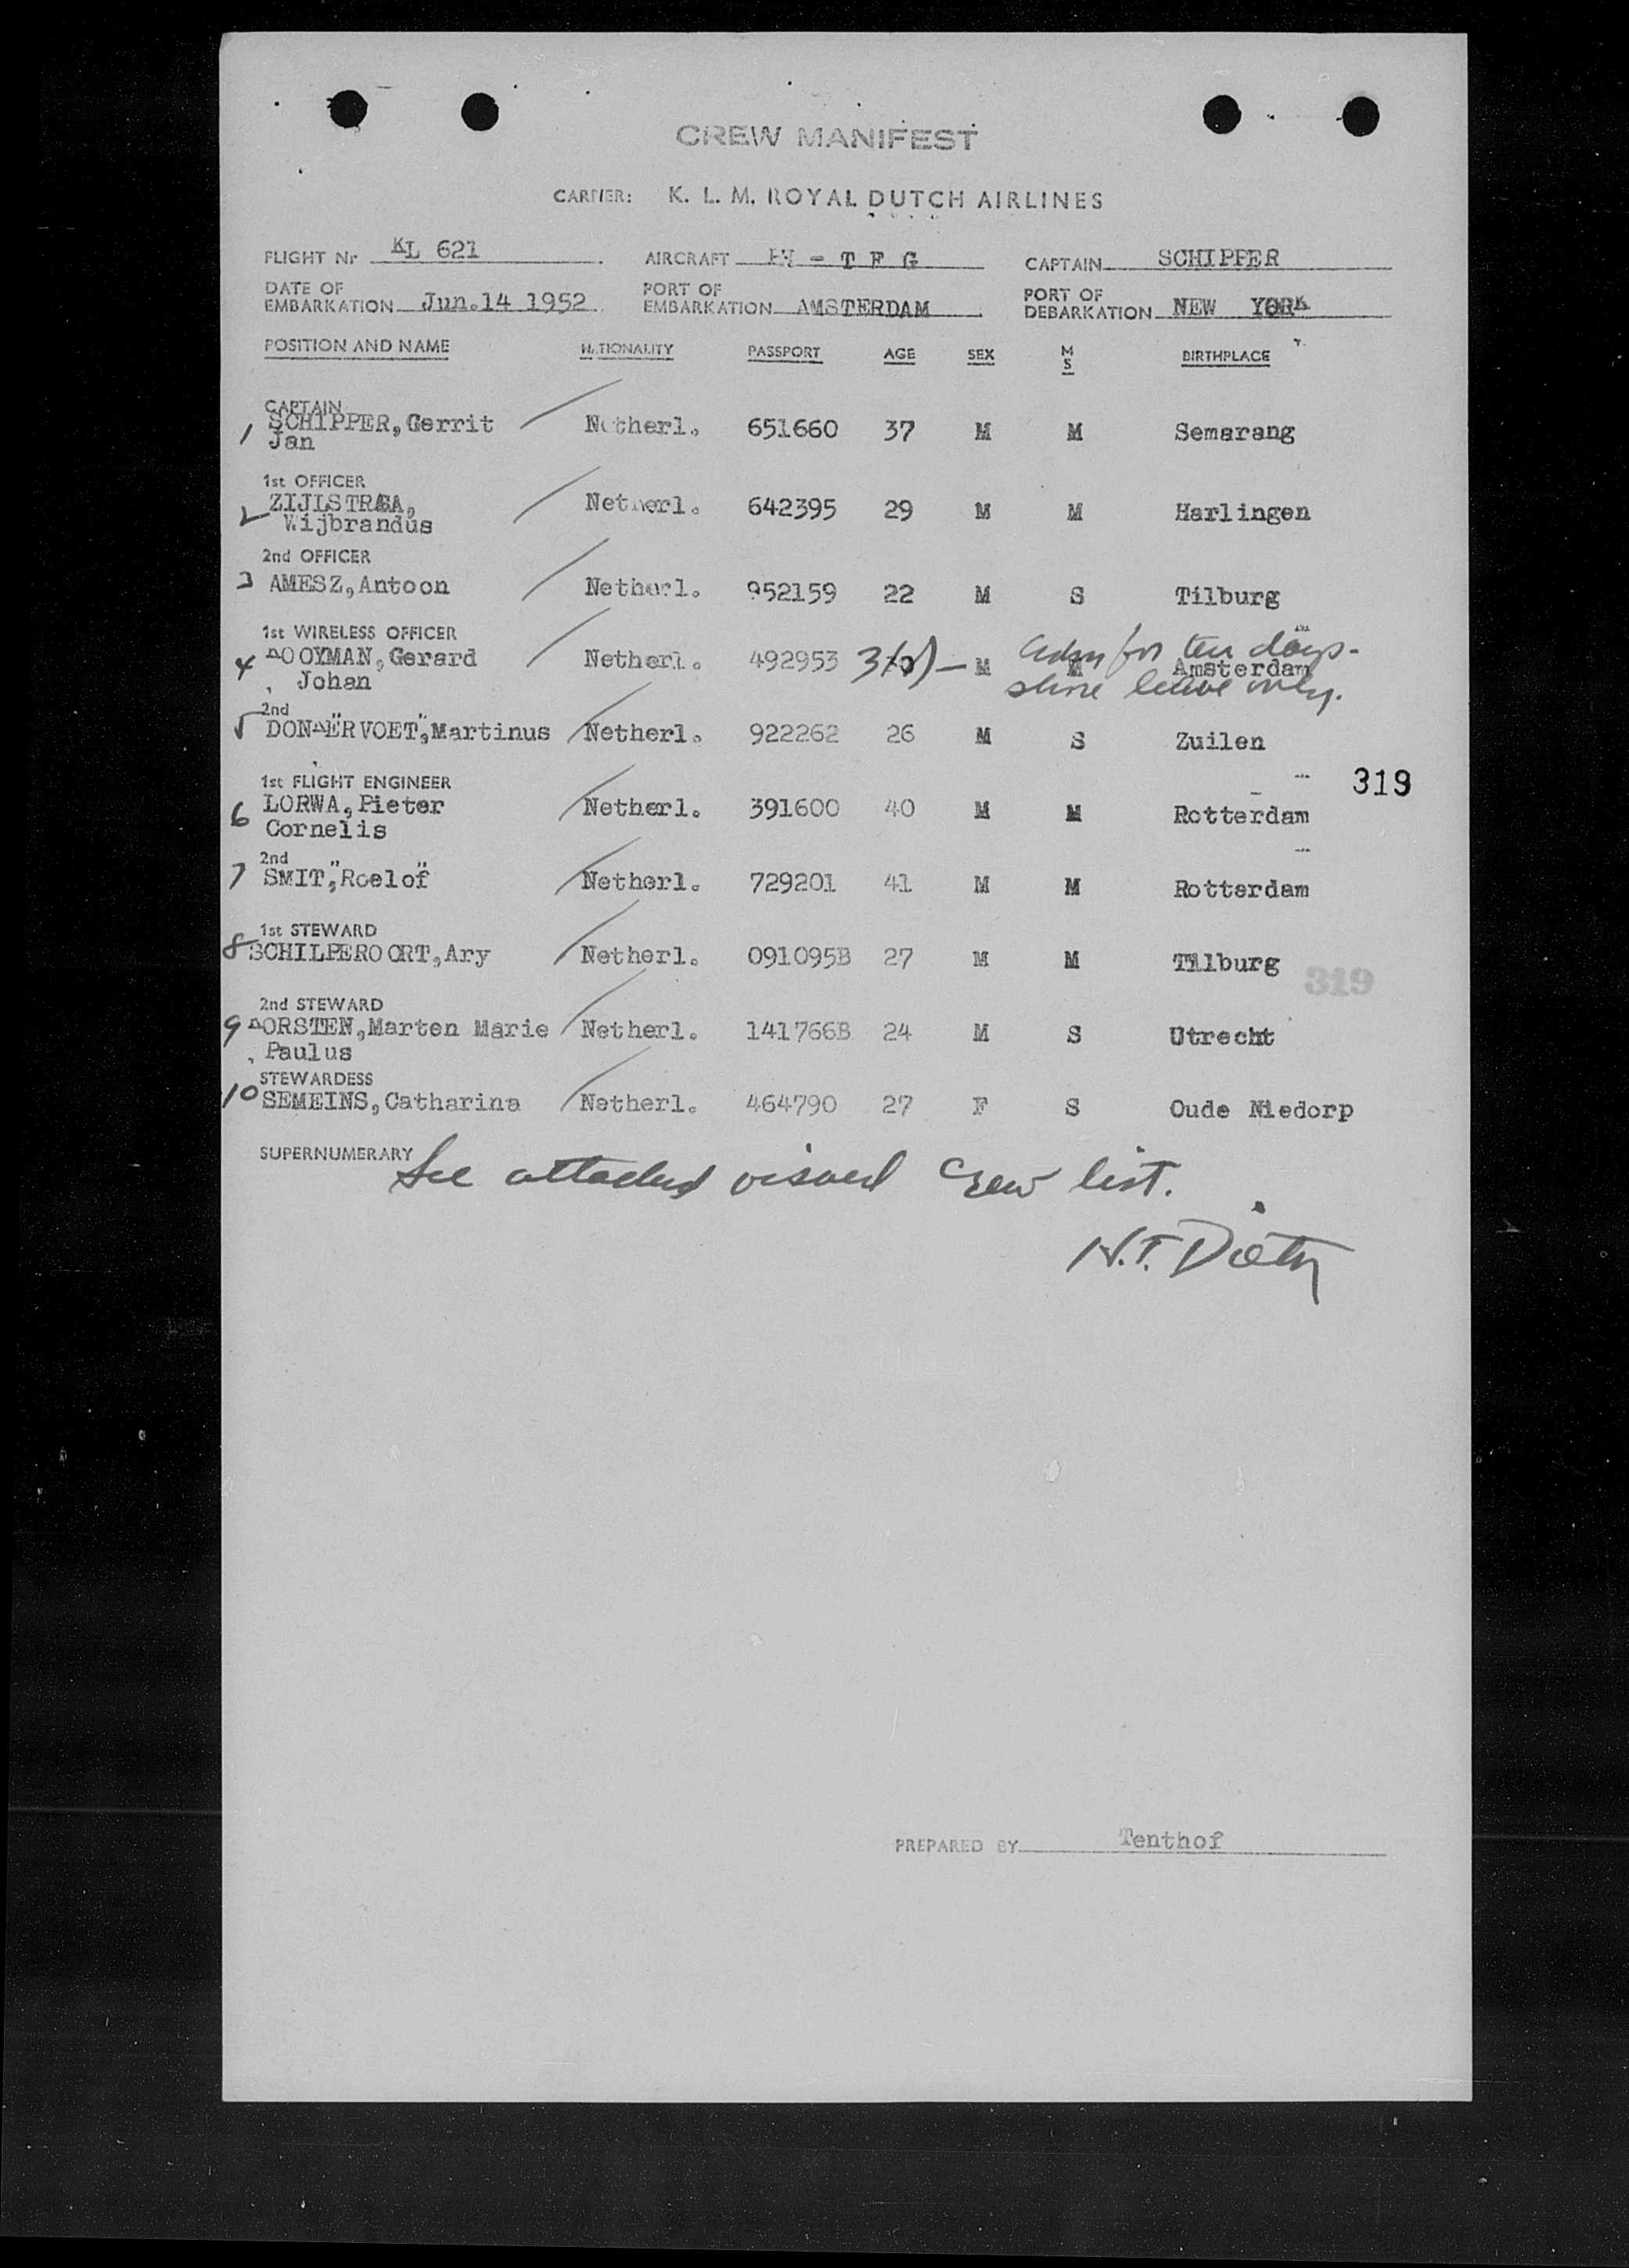 CREW MANIFEST
CARRIER: K. L. M. ROYAL DUTCH AIRLINES
FLIGHT Nr KL 621 AIRCRAFT PH - T F G CAPTAIN SCHIPPER
DATE OF EMBARKATION Jun.14 1952 PORT OF EMBARKATION AMSTERDAM PORT OF DEBARKATION NEW YORK
POSITION AND NAME NATIONALITY PASSPORT AGE SEX M S BIRTHPLACE
CAPTAIN
1 SCHIPPER, Gerrit Netherl. 651660 37 M M Semarang
Jan
1st OFFICER
2 ZIJLSTRA, Netherl. 642395 29 M M Harlingen
Wijbrandus
2nd OFFICER
3 AMESZ, Antoon Netherl. 952159 22 M S Tilburg
1st WIRELESS OFFICER
4 Gerard Netherl. 492953 M Amsterdam
Johan
adm for ten days-
shore leave only.
2nd " "
5 Martinus Netherl. 922262 26 M S Zuilen
1st FLIGHT ENGINEER
319
6 LORWA, Pieter Netherl. 391600 40 M M Rotterdam
Cornelis
2nd " "
7 SMIT, Roelof Netherl. 729201 41 M M Rotterdam
1st STEWARD
8 SCHILPEROORT, Ary Netherl. 091095B 27 M M Tilburg
319
2nd STEWARD
9 Marten Marie Netherl. 141766B 24 M S Utrecht
Paulus
STEWARDESS
10 SEMEINS, Catharina Netherl. 464790 27 F S Oude Niedorp
SUPERNUMERARY
See attached visaed crew list.
PREPARED BY Tenthof